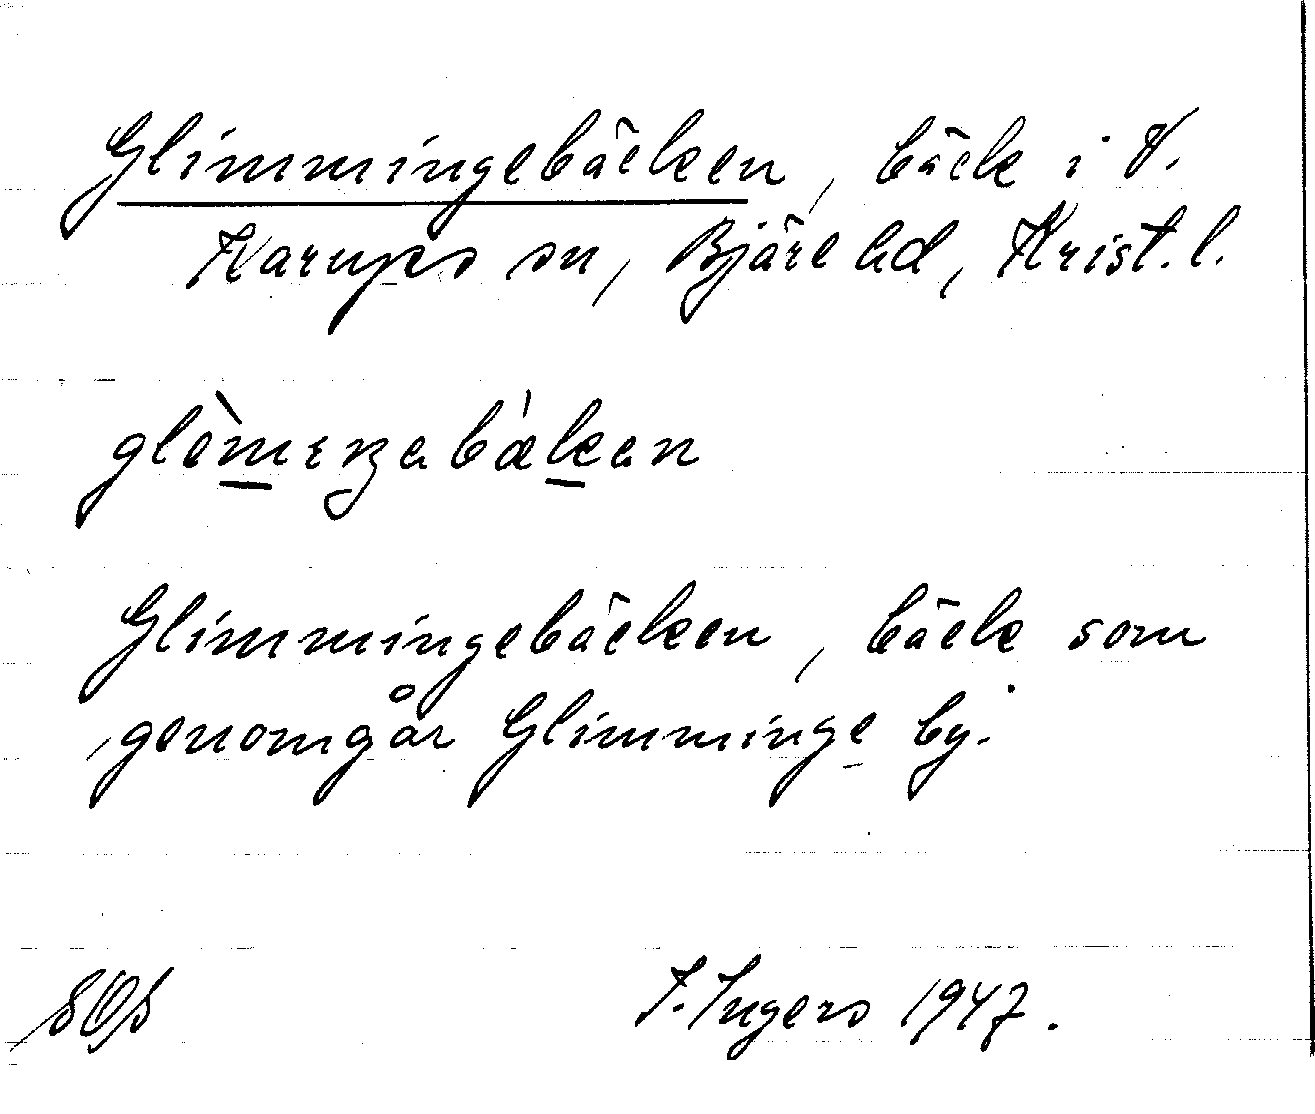 Glimmingebäcken, bäck i V.
Karups sn, Bjäre hd, Krist. l.
Glimmingebäcken, bäck som
genomgår Glimminge by.
I. Ingers 1947.